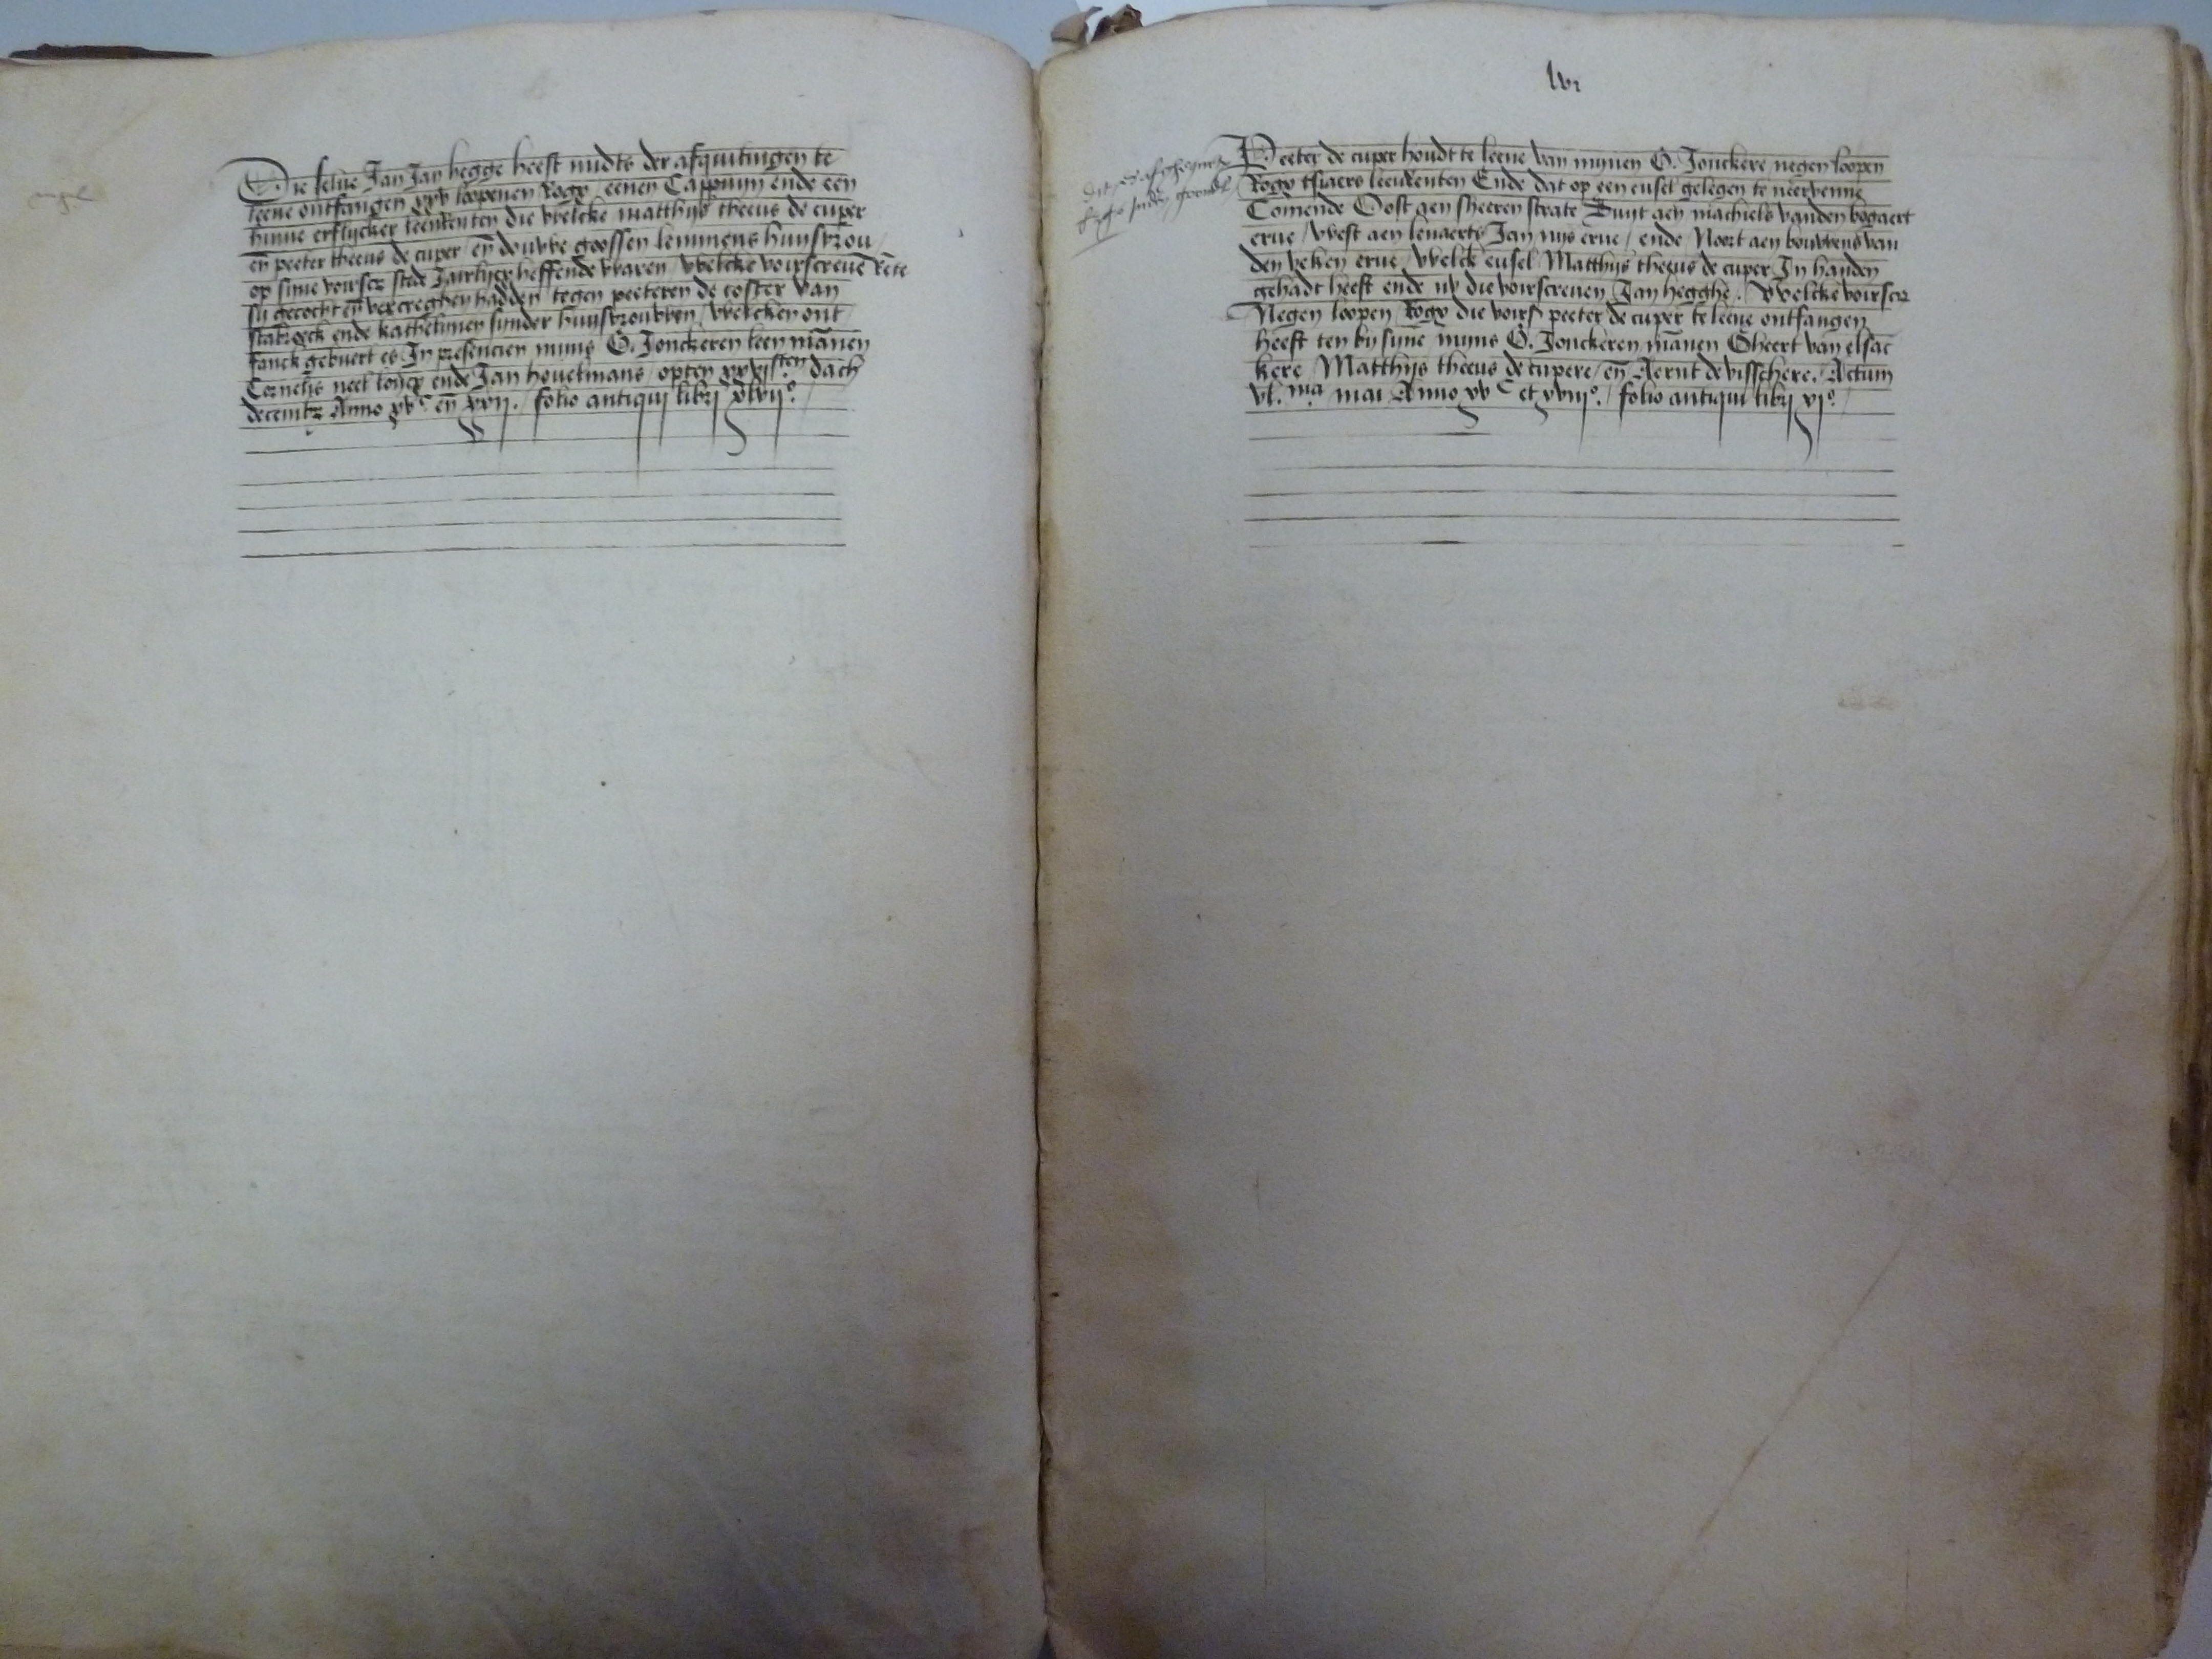 Die selue Jan Jan hegge heeft midts der afquitingen te
leene ontfangen xxv loopenen Rogx eenen Cappuyn ende een
hinne erflycker leenrenten die welcke matthijs theeus de cuper
en̄ peeter theeus de cuper en̄ douwe goossen lemmens huysvrou
op sine voirscr stede Jairlycx heffende waren / welcke voirscreuē rēte
sij gecocht en̄ vercregen hadden tegen peeteren de coster van
stabroeck ende kathelinen sijnder huysvrouwen / welcken ont
fanck gebuert es In presencien mijns G. Jonckeren leen mānen
Cornelis neel loncx ende Jan houelmans opten xxvisten dach
decembr Anno xvc en̄ xxij. / folio antiqui libri xlvijo.
lvi
Peeter de cuper houdt te leene van mijnen G. Jonckere negen loopen
Rogx tsiaers leenrenten Ende dat op een eusel gelegen te neervenne
Comende Oost aen sheeren strate Zuyt aen machiels vanden bogaert
erue / west aen lenaerts Jan nijs erue / ende Noort aen bouwens van
den veken erue / welck eusel Matthijs theeus de cuper In handen
gehadt heeft ende nv die voirscreuen Jan hegghe. welcke voirscr
Negen loopen Rogx die voirs peeter de cuper te leene ontfangen
heeft ten bysijne mijns G. Jonckeren mānen Gheert van elsac
kere Matthijs theeus de cupere / en̄ Aernt de visschere. Actum
vl.ma mai Anno xvc et xviijo. / folio antiqui libri xjo.